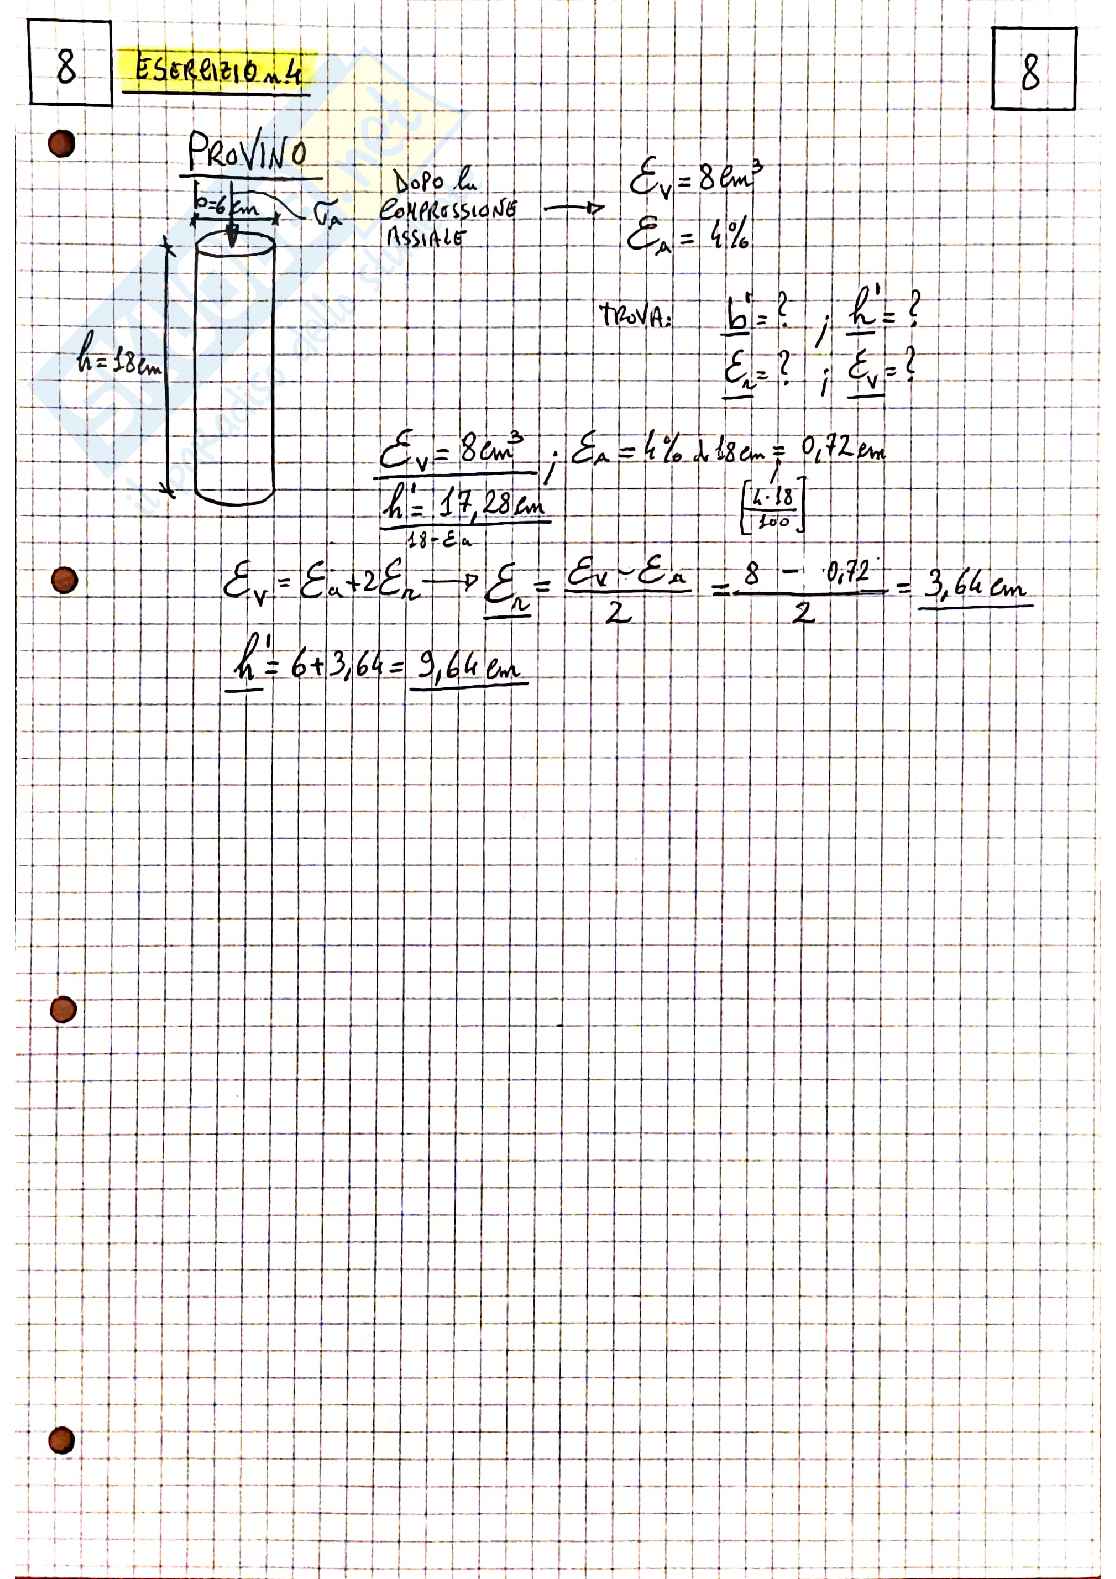 8 ESERCIZIO n.4 8
PROVINO
b=6cm
σa
h=18cm
DOPO la
COMPRESSIONE
ASSIALE
εv=8cm³
εA=4%
TROVA: b'=? ; h'=?
εr=? ; εv=?
εv=8cm³ ; εA=4% d 18cm = 0,72cm
h'=17,28cm [4·18/100]
18-εa
εv=εa+2εr → εr = (εv-εa)/2 = (8-0,72)/2 = 3,64cm
h'=6+3,64=9,64cm